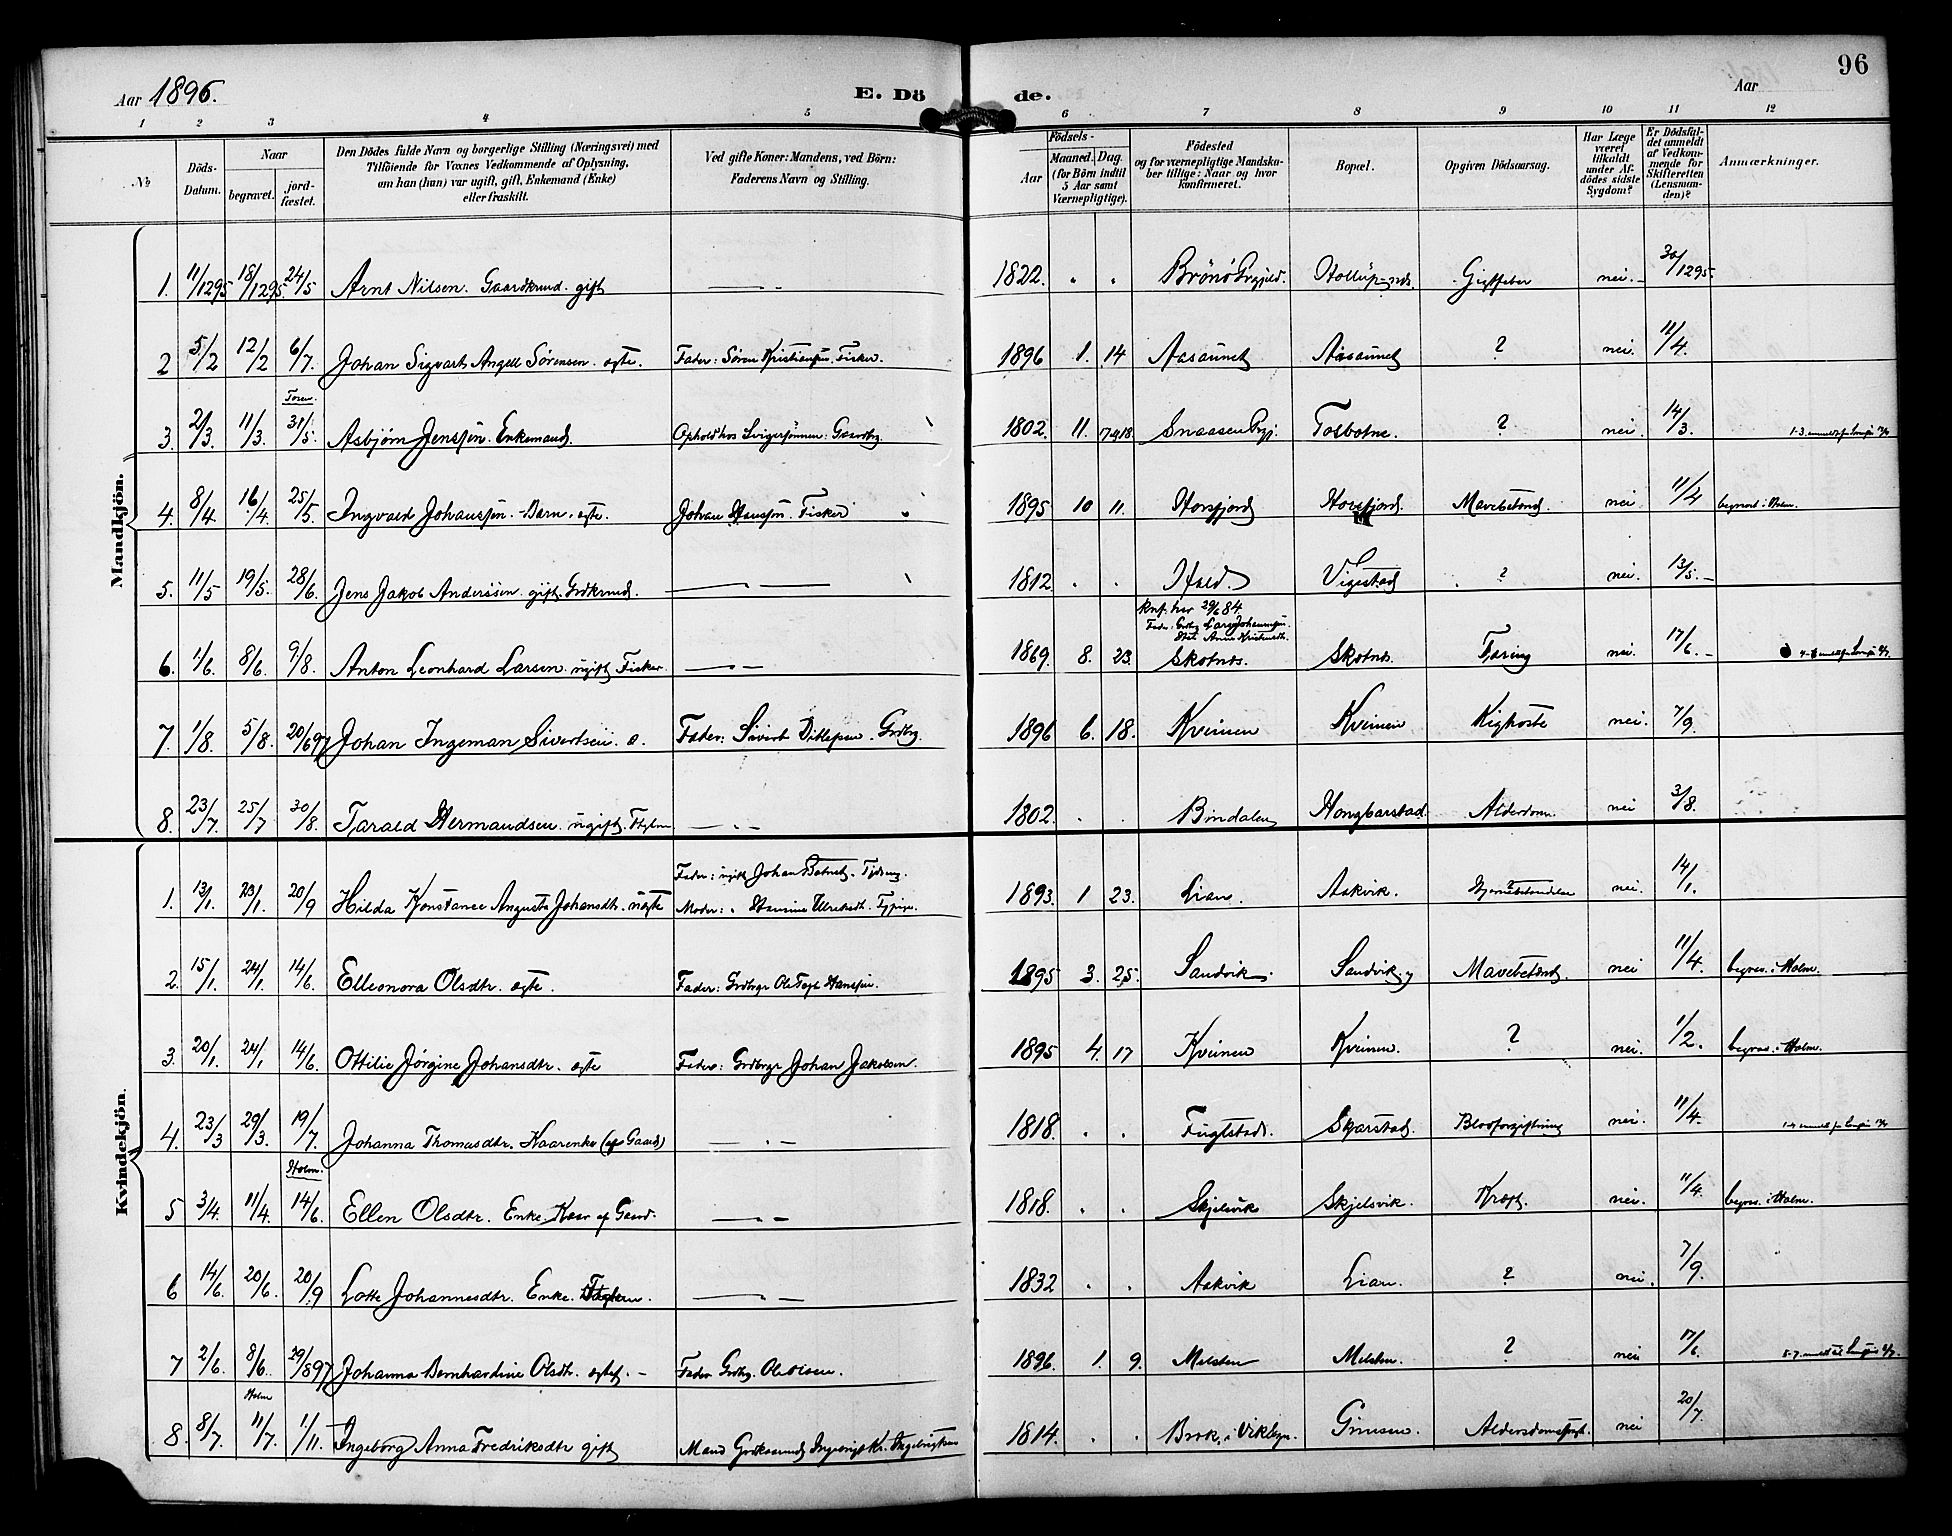 96
Aar 1896.
E. Dö de.
Aar
1 2 3 4 5 6 7 8 9 10 11 12
No
Döds-Datum.
Naar
begravet.
jordfæstet.
Den Dödes fulde Navn og borgerlige Stilling (Næringsvei) med
Tilföiende for Voxnes Vedkommende af Oplysning,
om han (hun) var ugift, gift, Enkemand (Enke)
eller fraskilt.
Ved gifte Koner: Mandens, ved Börn:
Faderens Navn og Stilling.
Födsels-
Aar
Maaned. Dag.
(for Börn indtil
5 Aar samt
Værnepligtige).
Födested
og for værnepligtige Mandska-
ber tillige: Naar og hvor
konfirmeret.
Bopæl.
Opgiven Dödsaarsag.
Har Læge
været
tilkaldt
under Af-
dödes sidste
Sygdom?
Er Dödsfal-
det anmeldt
af Vedkom-
mende for
Skifteretten
(Lensman-
den)?
Anmærkninger.
Mandkjön.
1. 11/1295 18/1295. 24/5 Arnt Nilsen. Gaardkrmd. gift 1822. " " Brönö Prgjeld. Gigtfeber nei. 30/1295
2 5/2 12/2 6/7. Johan Sigvart Angell Sörensen. ægte. Fader: Sören Kristiansen. Fisker. 1896 1. 14 Aasaunet Aasaunet ? nei. 11/4.
3. 2/3. 11/3. 31/5. Asbjörn Jenssön. Enkemand. Ophold hos Svigersönnen: Gaardbr. 1802. 11. Snaasen Prgj. Tosbotne. ? nei. 14/3.
4. 8/4. 16/4. 25/5. Ingvald Johanssön. Barn. ægte. Johan Hanssön. Fisker 1895 10 11. Horsfjord Horsfjord. Mavebetænd. nei. 11/4 begravet i Holm.
5. 11/5 19/5. 28/6. Jens Jakob Anderssen. gift. Grdkrmd. 1812. . . Vigestad ? nei. 13/5.
Knf. her 29/6 84.
6. 1/6. 8/6. 9/8. Anton Leonhard Larsen. ugift Fisker. 1869. 8. 23. Skotnes. Skotnes Tæring nei. 17/6.
7. 1/8. 5/8. 20/697 Johan Ingeman Sivertsen. æ. Fader: Sivert Ditlefsen. Grdbrg. 1896 6. 18. Kveinen Kveinen Kighoste nei. 7/9.
8. 23/7. 25/7 30/8. Tarald Hermandsen. ugift. 1802. . . Bindalen Alderdom nei 3/8.
Kvindekjön.
1. 13/1. 23/1. 20/9 Hilda Konstance Augusta Johansdtr. uægte Fader: ugift Johan
Moder: 1893. 1 23. Lian. Aakvik. nei. 14/1.
2. 15/1. 24/1. 14/6. Elleonora Olsdtr. ægte. Fader: Grdbrgr Ole Hanssen. 1895 3. 25. Sandvik. Sandvik Mavebetænd. nei 11/4. begrav. i Holm.
3. 20/1. 24/1 14/6. Ottilie Jörgine Johansdtr. ægte Fader: Grdbrgr Johan Jakobsen. 1895 4. 17 Kveinen Kveinen. ? nei. 11/2. begrav. i Holm.
4. 23/3 29/3. 19/7. Johanna Thomasdtr. Kaarenke (af Gaard) 1818. . . Fuglstad. Skarstad. Blodforgiftning nei. 11/4.
Holm.
5 3/4. 11/4. 14/6. Ellen Olsdtr. Enke Kaar af Gaard. 1818. . . Skjelsvik Skjelsvik. Kræft. nei. 11/4. begrav. i Holm.
6 14/6. 20/6. 20/9 Lotte Johannesdtr. Enke. 1832 . . Aakvik Lian. ? nei. 7/9.
7 2/6. 8/6. 29/897 Johanna Bernhardine Olsdtr. ægtef. Fader Grdbrg. Ole Olsen. 1896. 1. 9. Melsten Melsten. ? nei 17/6.
Holm
8. 8/7. 11/7. 1/11. Ingeborg Anna Fredriksdtr gift Mand 1814. . . Brok, i Vikbygn. Grinsen. nei 20/7.